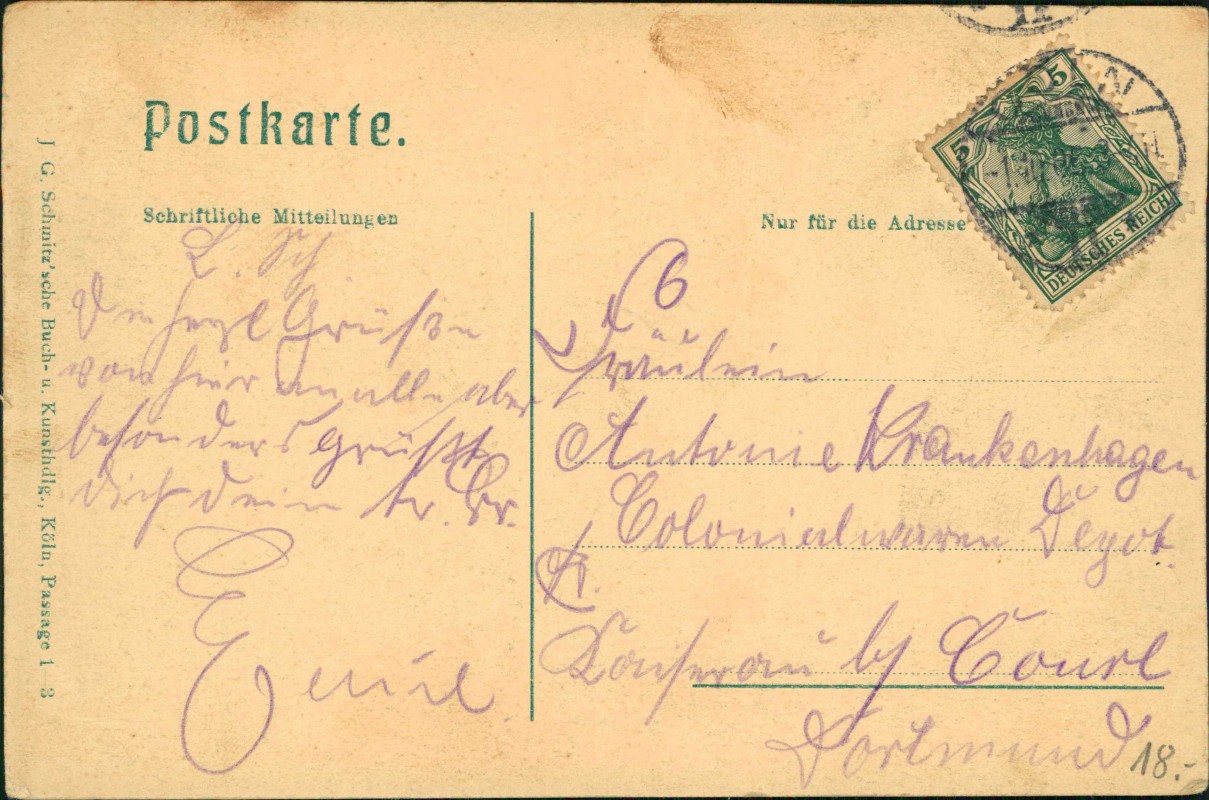 Postkarte.
Schriftliche Mitteilungen
Nur für die Adresse
J. G. Schmitz'sche Buch- u. Kunsthdlg., Köln, Passage 1-3
L. Sch
Die herzl Grüße
von hier an alle aber
besonders grüßt
dich dein tr. Br.
Emil
Fräulein
Antonie Krankenhagen
Colonialwaren Depot.
Kaiserau b/ Courl
Dortmund
18.-
5
5
DEUTSCHES REICH